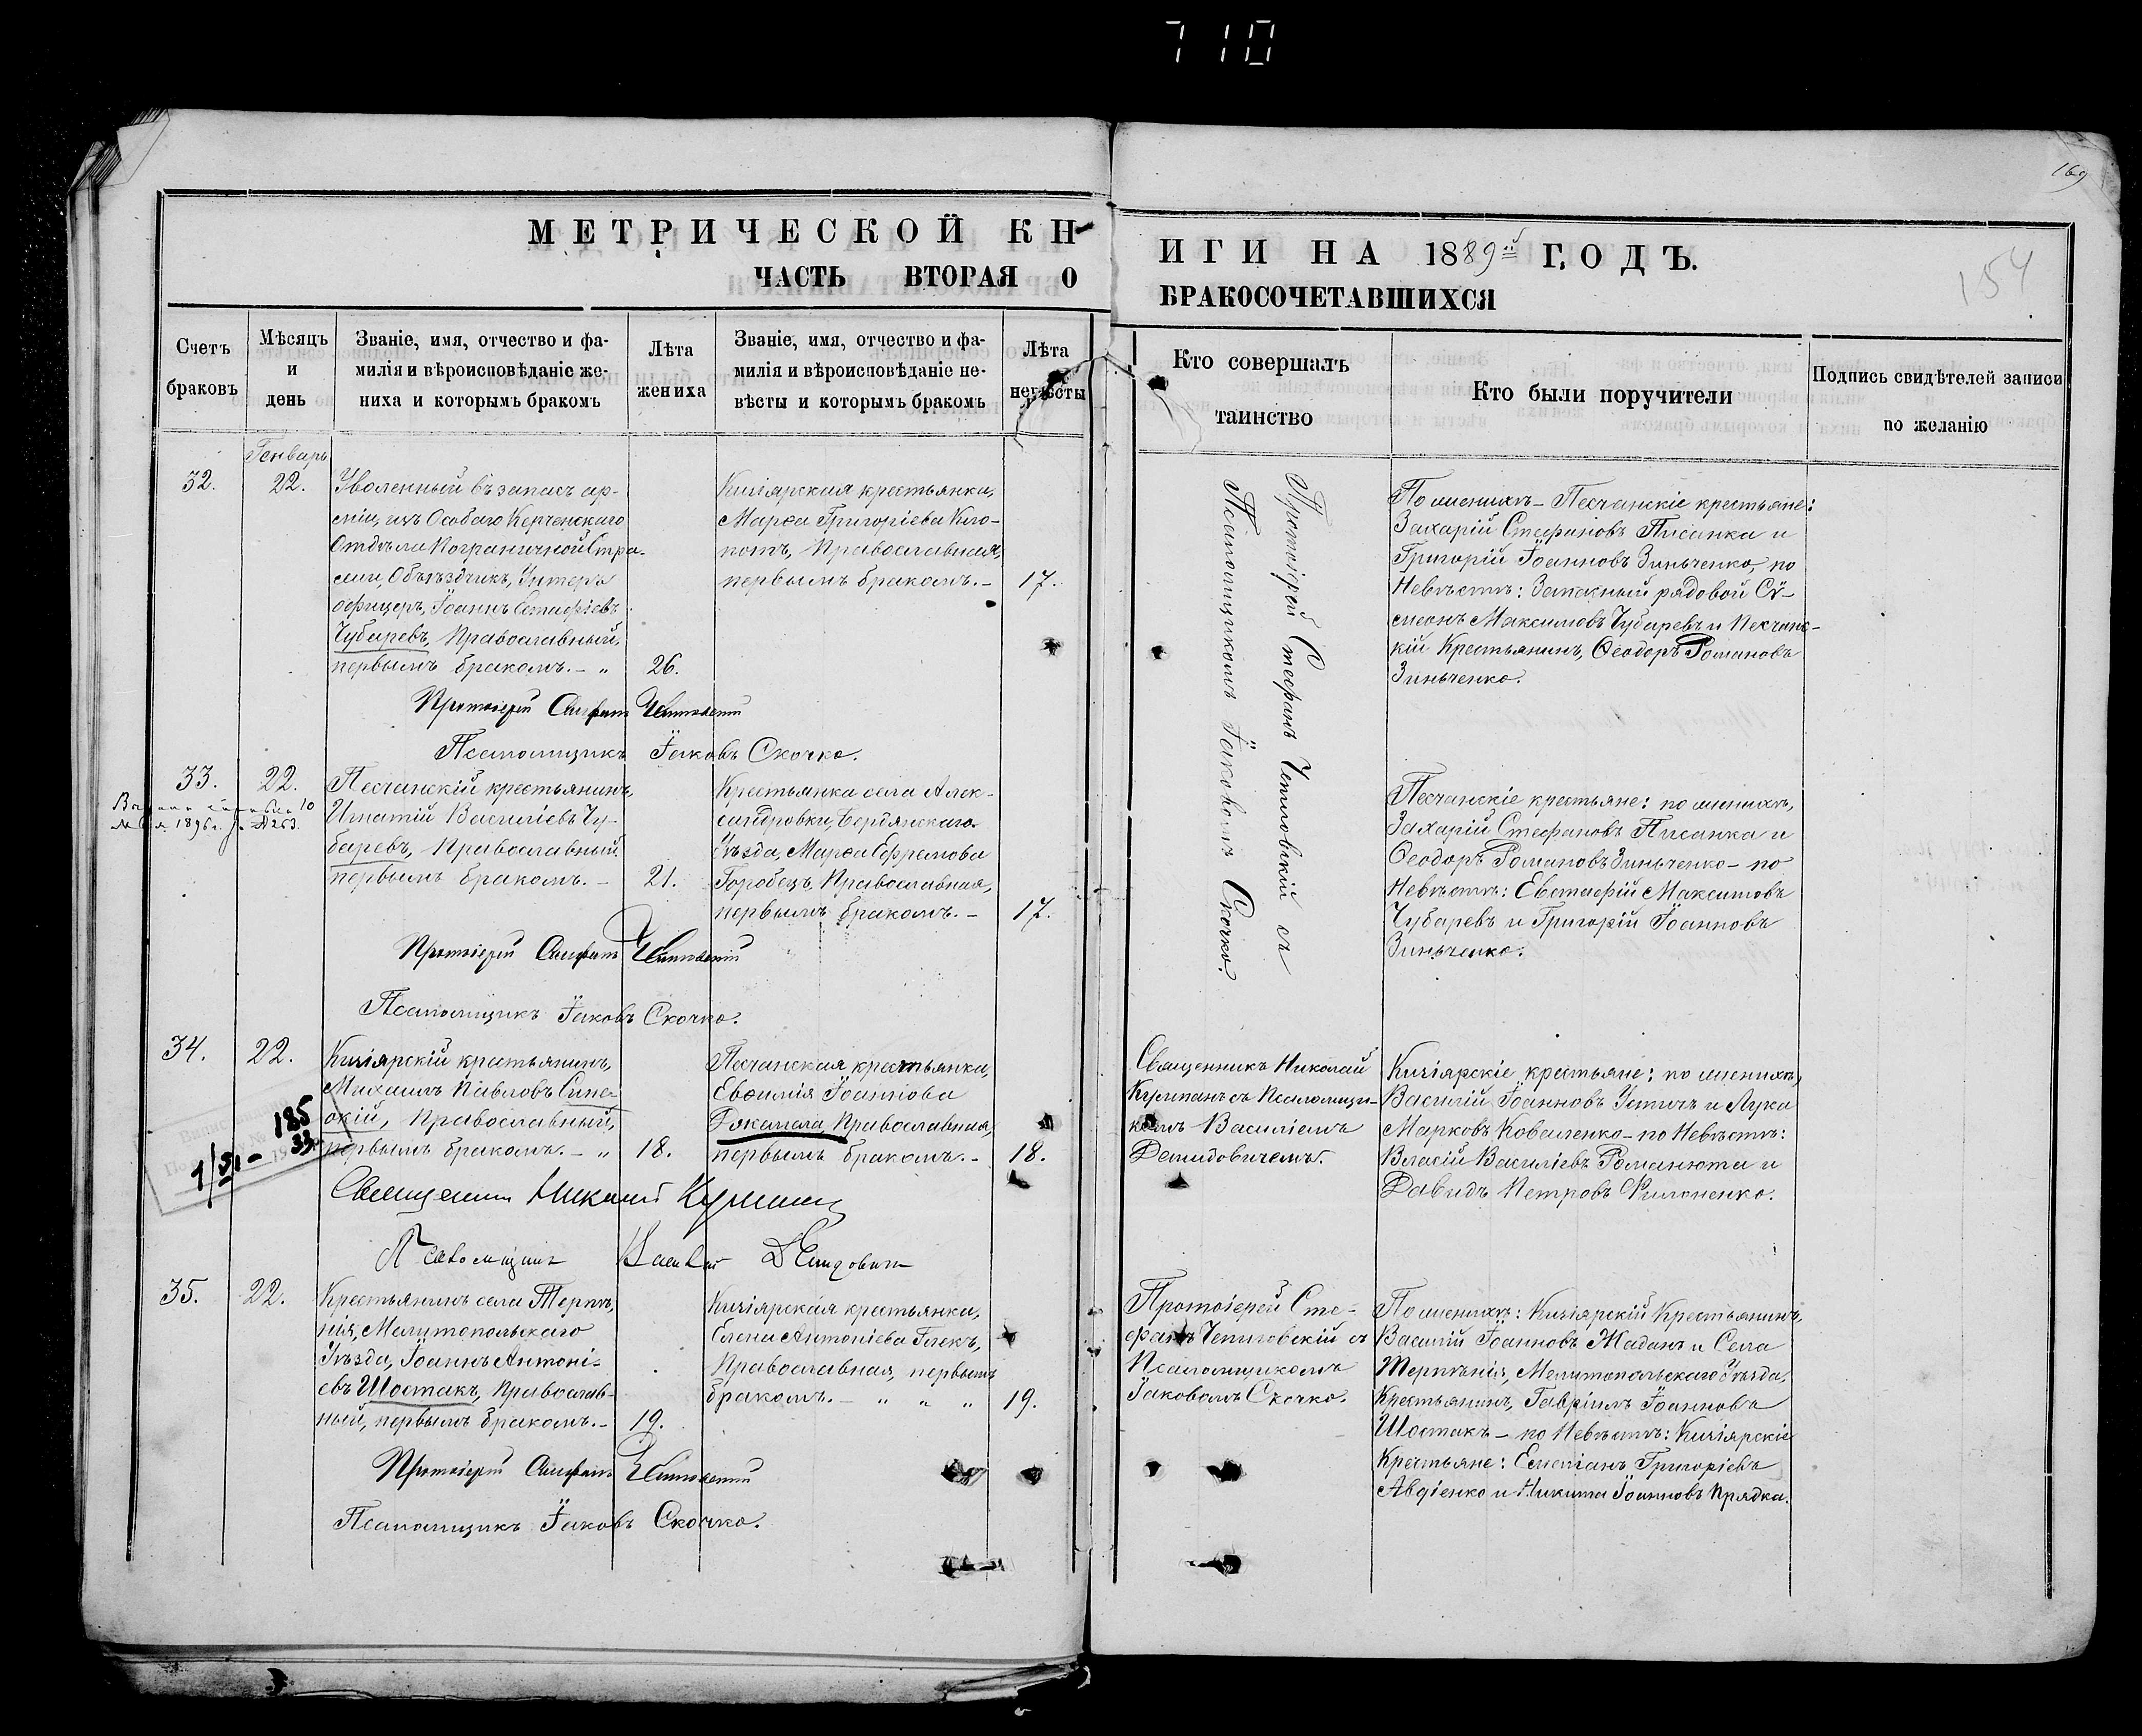 710
169
154
МЕТРИЧЕСКОЙ КН
ИГИ НА 1889й ГОДЪ.
ЧАСТЬ ВТОРАЯ О
БРАКОСОЧЕТАВШИХСЯ
Счетъ
браковъ
Мѣсяцъ
и
день
Званіе, имя, отчество и фа-
милія и вѣроисповѣданіе же-
ниха и которымъ бракомъ
Лѣта
жениха
Званіе, имя, отчество и фа-
милія и вѣроисповѣданіе не-
вѣсты и которымъ бракомъ
Лѣта
невѣсты
Кто совершалъ
таинство
Кто были поручители
Подпись свидѣтелей записи
по желанію
Генварь
32.
22.
Уволенный въ запасъ ар-
міи, изъ Особаго Керченскаго
Отдѣла Пограничной Стра-
жи, Объѣздчикъ, Унтеръ
офицеръ, Іоаннъ Евстафіевъ
Чубаревъ, Православный,
первымъ бракомъ. – „
26.
Кизіярская крестьянка,
Марѳа Григоріева Кло-
потъ, Православная,
первымъ бракомъ. –
17.
Протоіерей Стефанъ Чепиговскій съ
Псаломщикомъ Іаковомъ Скочко.
По женихѣ – Песчанскіе крестьяне:
Захарій Стефановъ Писанка и
Григорій Іоанновъ Зинченко, по
Невѣстѣ: Запасный рядовой Сѵ-
меонъ Максимовъ Чубаревъ и Песчанс-
кій Крестьянинъ, Ѳеодоръ Романовъ
Зинченко.
Протоіерей Стефанъ Чепиговскій
Псаломщикъ Іаковъ Скочко.
33.
22.
Песчанскій крестьянинъ,
Игнатій Василіевъ Чу-
баревъ, Православный
первымъ бракомъ. –
21.
Крестьянка села Алек-
сандровки, Бердянскаго
Уѣзда, Марѳа Ефремова
Горобецъ, Православная,
первымъ бракомъ. –
17.
Песчанскіе крестьяне: по женихѣ,
Захарій Стефановъ Писанка и
Ѳеодоръ Романовъ Зинченко – по
Невѣстѣ: Евстафій Максимовъ
Чубаревъ и Григорій Іоанновъ
Зинченко.
1896 г. № 253.
Протоіерей Стефанъ Чепиговскій
Псаломщикъ Іаковъ Скочко.
34.
22.
Кизіярскій крестьянинъ,
Михаилъ Павловъ Сине-
окій, Православный,
первымъ бракомъ. – „
18.
Песчанская крестьянка,
Евѳимія Іоаннова
Рокамала, Православная,
первымъ бракомъ. –
18.
Священникъ Николай
Курпанъ съ Псаломщи-
комъ Василіемъ
Демидовичемъ.
Кизіярскіе крестьяне: по женихѣ,
Василій Іоанновъ Устичъ и Лука
Марковъ Коваленко – по Невѣстѣ:
Власій Василіевъ Романюта и
Давидъ Петровъ Филоненко.
185
33
Священникъ Николай Курпанъ
Псаломщикъ Василій Демидовичъ
35.
22.
Крестьянинъ села Терпѣ-
нія, Мелитопольскаго
Уѣзда, Іоаннъ Антоні-
евъ Шостакъ, Православ-
ный, первымъ бракомъ. –
19.
Кизіярская крестьянка,
Елена Антоніева Глекъ,
Православная, первымъ
бракомъ. – „ „ „
19.
Протоіерей Сте-
фанъ Чепиговскій съ
Псаломщикомъ
Іаковомъ Скочко.
По женихѣ: Кизіярскій Крестьянинъ,
Василій Іоанновъ Жаданъ и Села
Терпѣнія, Мелитопольскаго Уѣзда,
Крестьянинъ, Гавріилъ Іоанновъ
Шостакъ – по Невѣстѣ: Кизіярскіе
Крестьяне: Емеліанъ Григоріевъ
Авдіенко и Никита Іоанновъ Прядка.
Протоіерей Стефанъ Чепиговскій
Псаломщикъ Іаковъ Скочко.